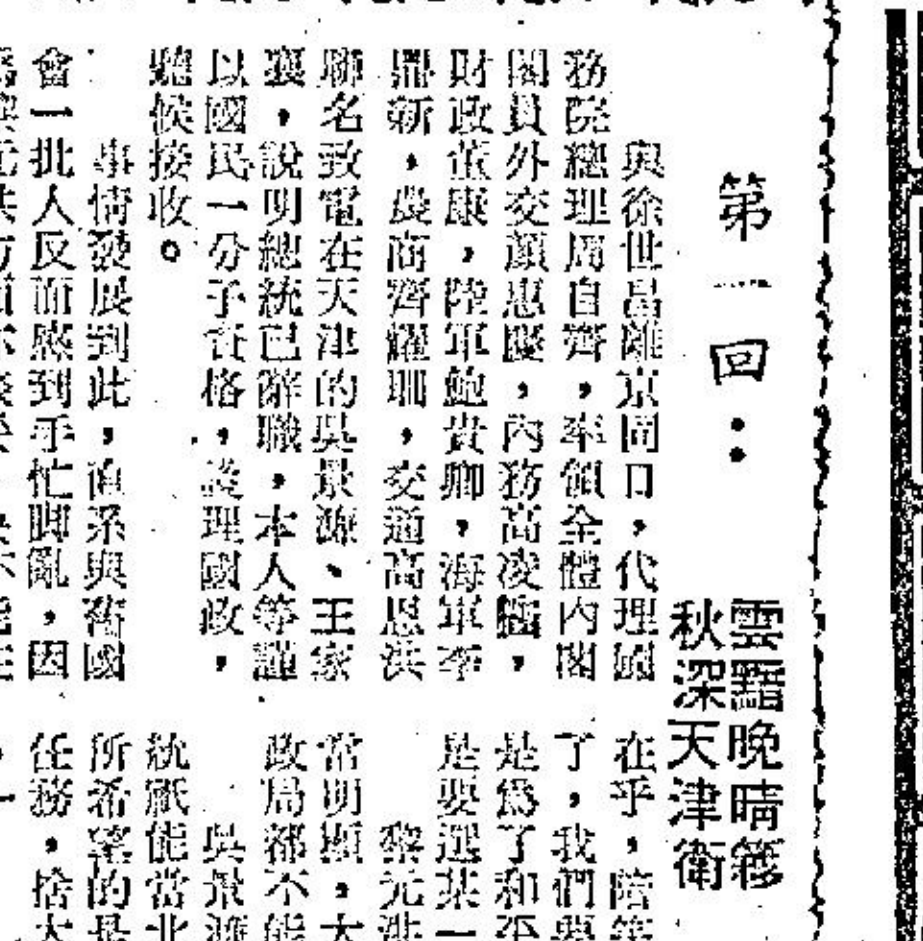 第一回：
雲黯晚晴簃
秋深天津衛
與徐世昌離京同日，代理國
務院總理周自齊，率領全體內閣
閣員外交顏惠慶，內務高凌霨，
財政董康，陸軍鮑貴卿，海軍李
鼎新，農商齊耀珊，交通高恩洪
聯名致電在天津的吳景濂、王家
襄，說明總統已辭職，本人等謹
以國民一分子資格，護理國政，
聽候接收。
事情發展到此，直系與舊國
會一批人反而感到手忙腳亂，因
在乎，
了，我們要
是爲了和平
是要選某一
黎元洪
當明顯，大
政局都不能
吳景濂
統祇能當北
所希望的是
任務，捨大